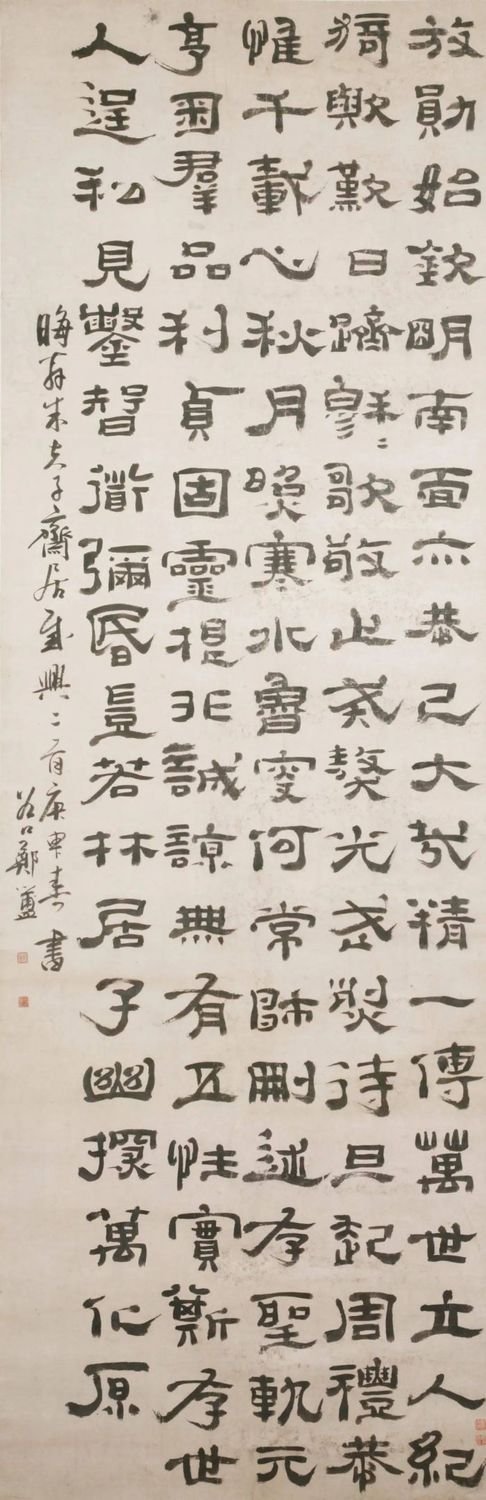 放勛始欽明南面亦恭己大哉精一傳萬世立人紀
猗歟歎日躋穆〻歌敬止戒獒光武烈待旦起周禮恭
惟千載心秋月照寒水魯叟何常師刪述存聖軌元
亨播羣品利貞固靈根非誠諒無有五性實斯存世
人逞私見鑿智衟彌昏豈若林居子幽探萬化原
晦菴朱夫子齋居感興二首庚申春書
谷口鄭簠